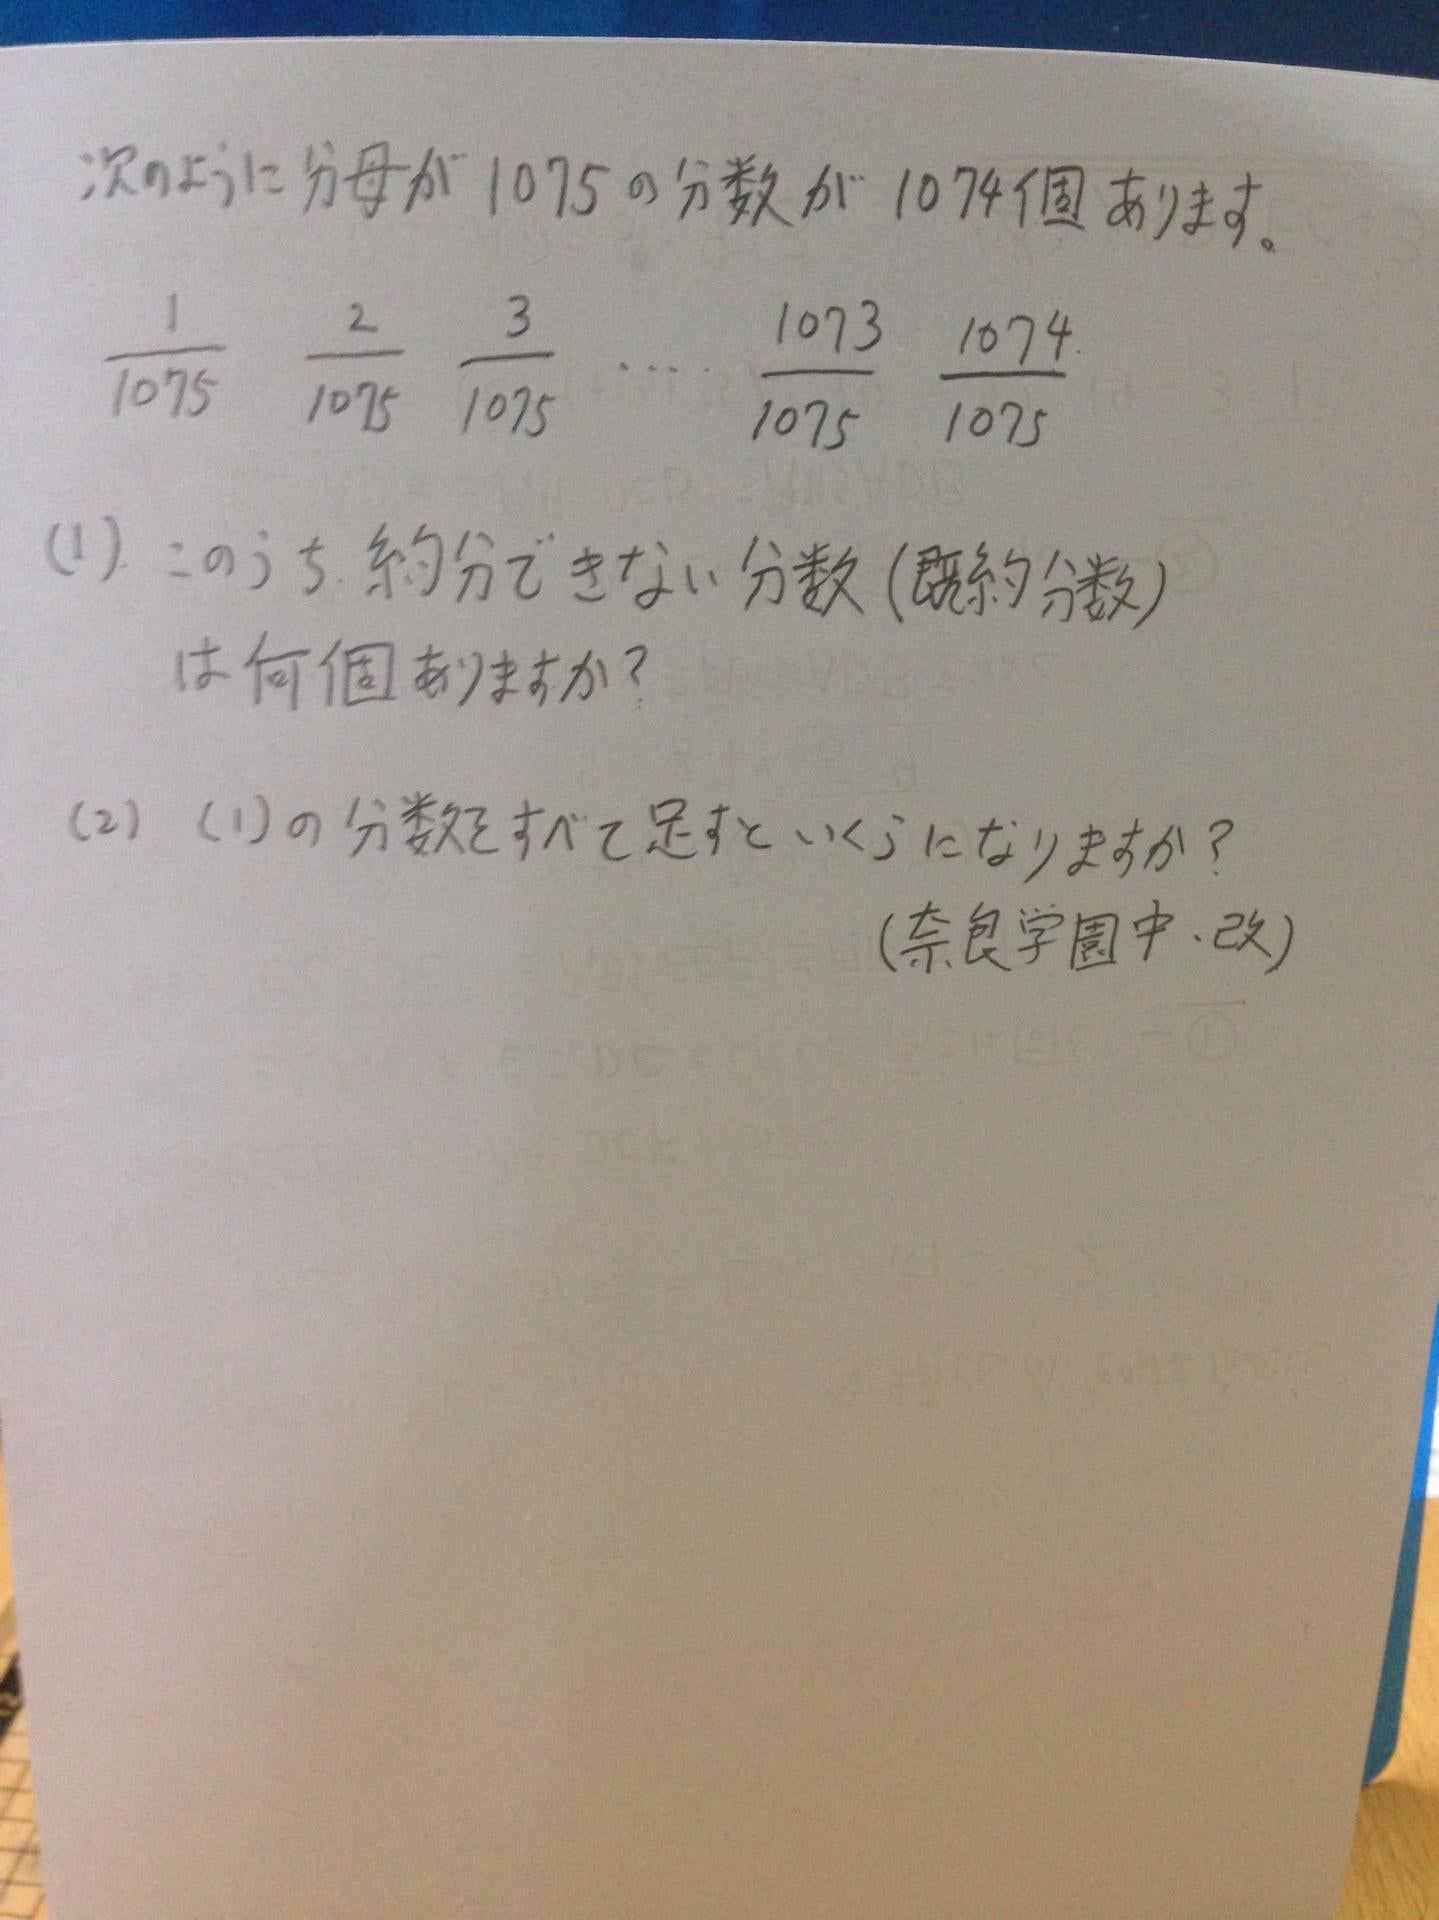 次のように分母が1075の分数が1074個あります。
1/1075 2/1075 3/1075 ..... 1073/1075 1074/1075
(1). このうち.約分できない分数(既約分数)
は何個ありますか?
(2) (1)の分数をすべて足すといくらになりますか?
(奈良学園中.改)